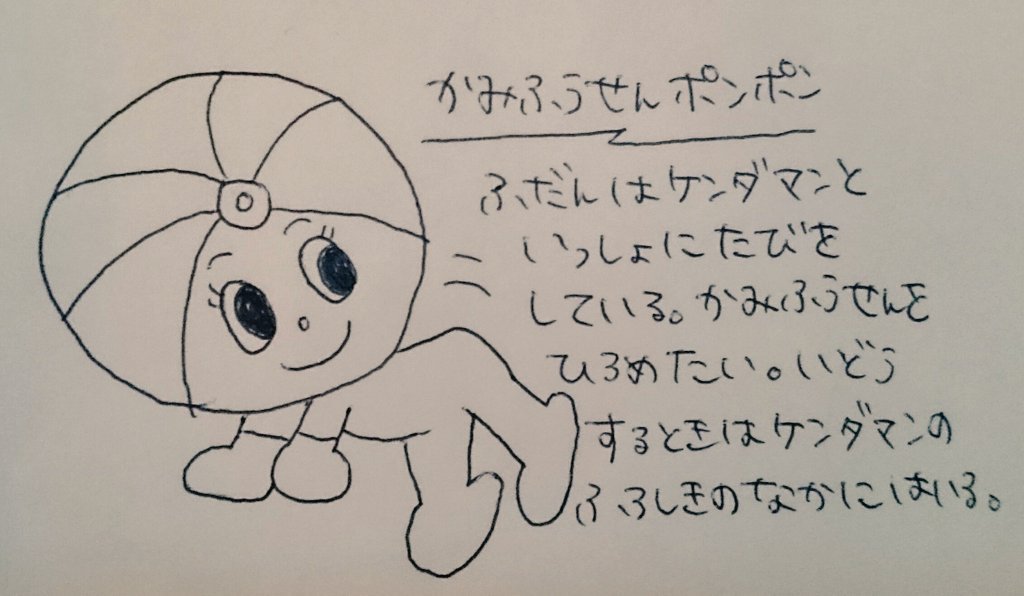 かみふうせんポンポン
ふだんはケンダマンと
いっしょにたびを
している。かみふうせんを
ひろめたい。いどう
するときはケンダマンの
ふろしきのなかにはいる。